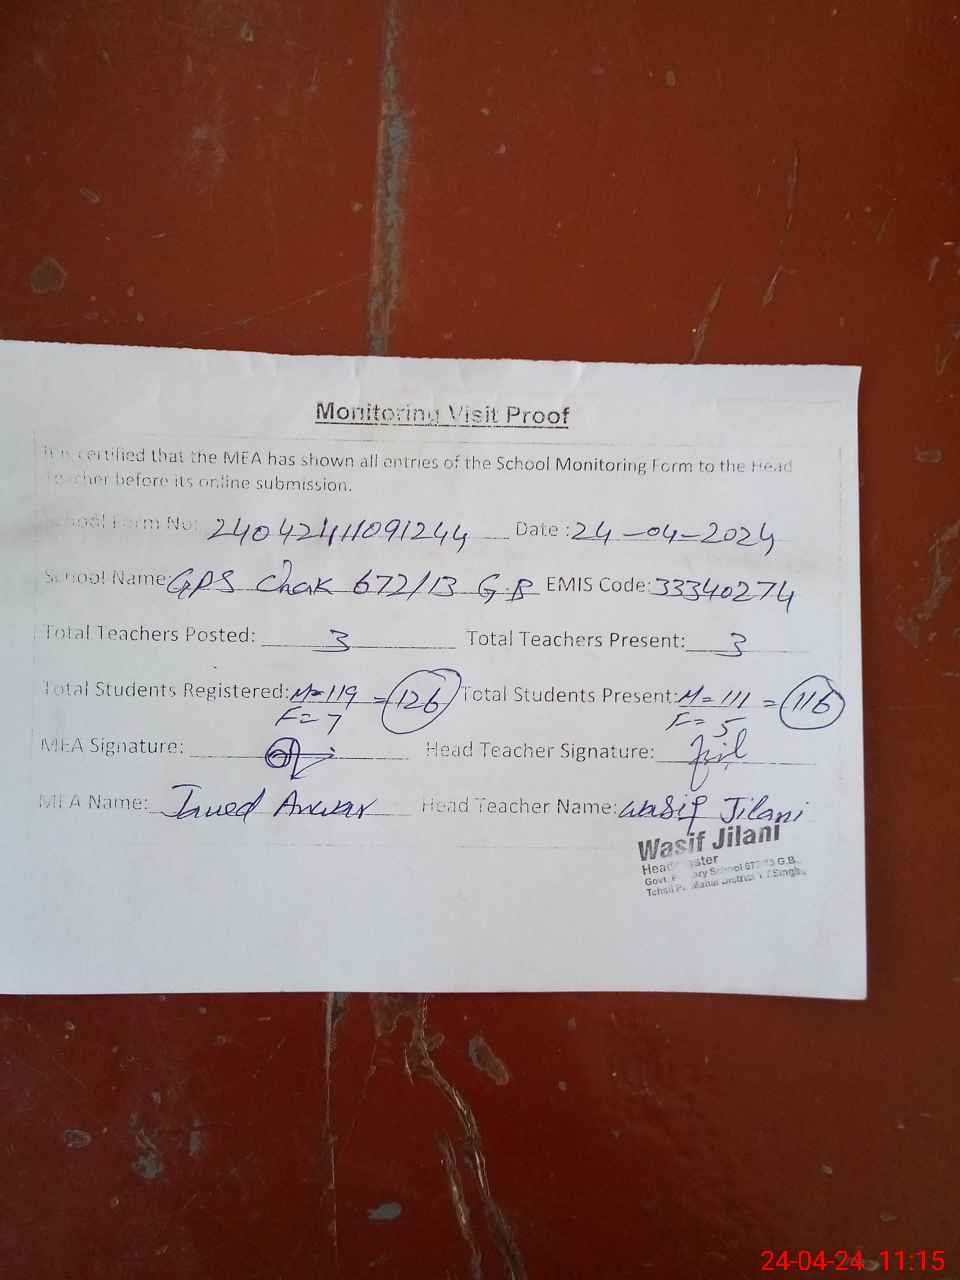 Monitoring Visit Proof
It is certified that the MEA has shown all entries of the School Monitoring Form to the Head
Teacher before its online submission.
School Form No: 24042411091244 Date : 24-04-2024
School Name: GPS Chak 672/13 G.B EMIS Code: 33340274
Total Teachers Posted: 3 Total Teachers Present: 3
Total Students Registered: M=119 = 126 Total Students Present: M=111 = 116
F=7 F=5
MEA Signature: Head Teacher Signature:
MEA Name: Javed Anwar Head Teacher Name: Wasif Jilani
Wasif Jilani
Govt. School 672/13 G.B.
Tehsil District T.T Singh
24-04-24 11:15